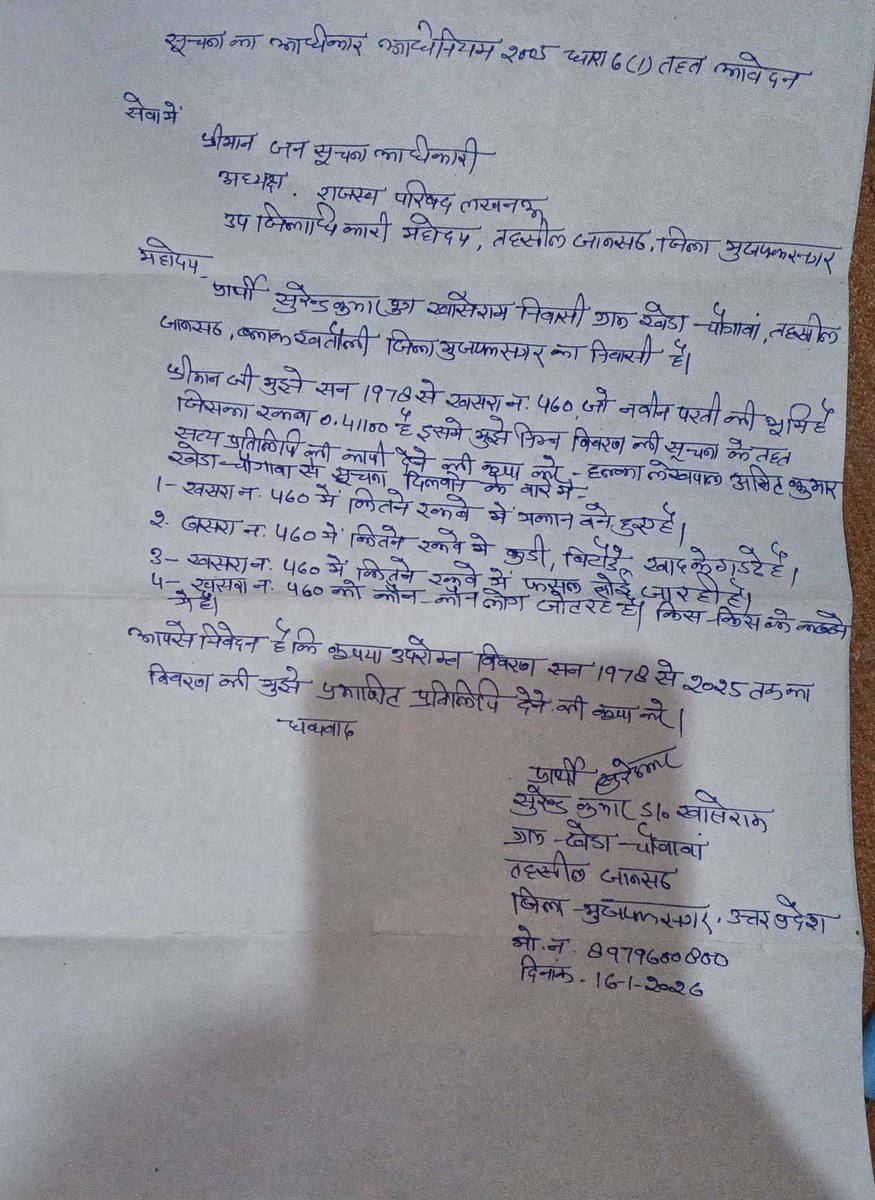 सूचना का अधिकार अधिनियम २००५ धारा ६(1) तहत आवेदन
सेवा में
श्रीमान जन सूचना अधिकारी
अध्यक्ष. राजस्व परिषद लखनऊ
उप जिलाधिकारी महोदय, तहसील जानसठ, जिला मुजफ्फरनगर
महोदय,
प्रार्थी सुरेन्द्र कुमार पुत्र खासेराम निवासी ग्राम खेडा-चौगावां, तहसील
जानसठ, ब्लाक खतौली जिला मुजफ्फरनगर का निवासी है।
श्रीमान जी मुझे सन 1978 से खसरा न. ४६० जो नवीन परती की भूमि है
जिसका रकबा 0.41100 है इसमे मुझे निम्न विवरण की सूचना के तहत
सत्य प्रतिलिपि की कापी देने की कृपा करे - हल्का लेखपाल अमित कुमार
खेडा-चौगावा से सूचना दिलवाने के बारे मे-
1- खसरा न. ४६० में कितने रकबे में मकान बने हुए है।
२. खसरा न. ४६० में कितने रकवे मे कुडी, बिटौडे, खाद के गड्ढे है।
३- खसरा न. ४६० में कितने रकवे में फसल बोई जा रही है।
४- खसरा न. ४६० को कौन-कौन लोग जोत रहे है। किस-किस के कब्जे
मे है।
आपसे निवेदन है कि कृपया उपरोक्त विवरण सन 1978 से २०२५ तक का
विवरण की मुझे प्रमाणित प्रतिलिपि देने की कृपा करे।
धन्यवाद
प्रार्थी
सुरेन्द्र कुमार S/o खासेराम
ग्राम-खेडा-चौगावां
तहसील जानसठ
जिला-मुजफ्फरनगर, उत्तर प्रदेश
मो. न. 8979600800
दिनांक- 16-1-२०२६